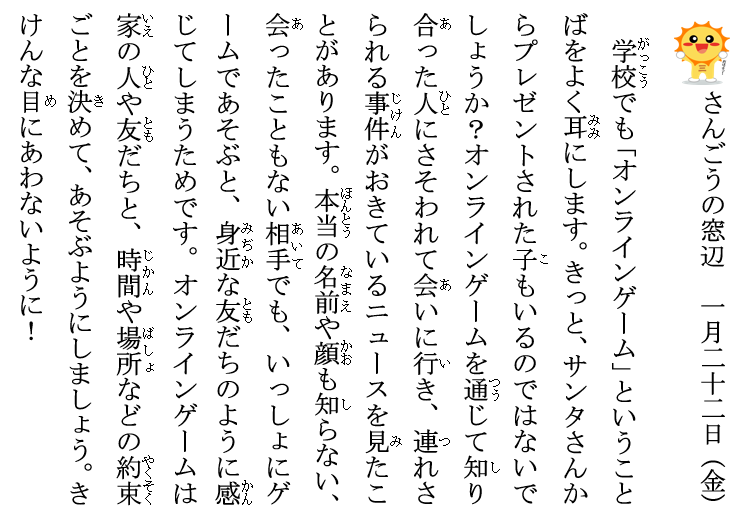 さんごうの窓辺　一月二十二日（金）
学校でも「オンラインゲーム」ということ
ばをよく耳にします。きっと、サンタさんか
らプレゼントされた子もいるのではないで
しょうか？オンラインゲームを通じて知り
合った人にさそわれて会いに行き、連れさ
られる事件がおきているニュースを見たこ
とがあります。本当の名前や顔も知らない、
会ったこともない相手でも、いっしょにゲ
ームであそぶと、身近な友だちのように感
じてしまうためです。オンラインゲームは
家の人や友だちと、時間や場所などの約束
ごとを決めて、あそぶようにしましょう。き
けんな目にあわないように！